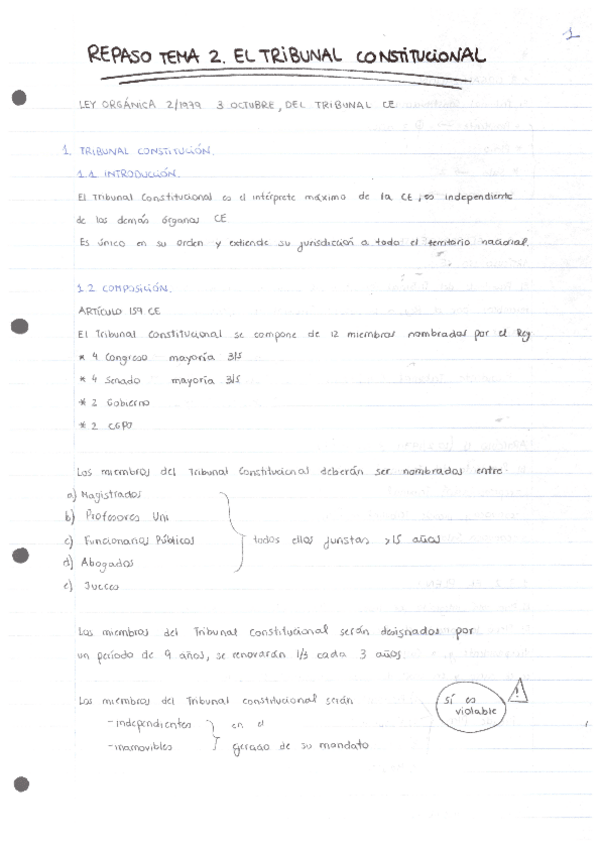 1
REPASO TEMA 2. EL TRIBUNAL CONSTITUCIONAL
LEY ORGÁNICA 2/1979 3 OCTUBRE, DEL TRIBUNAL CE
1 TRIBUNAL CONSTITUCIÓN.
1.1 INTRODUCCIÓN.
El Tribunal Constitucional es el intérprete máximo de la CE, es independiente
de los demás órganos CE
Es único en su orden y extiende su jurisdicción a todo el territorio nacional.
1.2 COMPOSICIÓN.
ARTÍCULO 159 CE
El Tribunal Constitucional se compone de 12 miembros nombrados por el Rey
* 4 Congreso mayoría 3/5
* 4 Senado mayoría 3/5
* 2 Gobierno
* 2 CGPJ
Los miembros del Tribunal Constitucional deberán ser nombrados entre
a) Magistrados
b) Profesores Uni
c) Funcionarios Públicos todos ellos juristas >15 años
d) Abogados
e) Jueces
Los miembros del Tribunal Constitucional serán designados por
un período de 9 años, se renovarán 1/3 cada 3 años
Los miembros del Tribunal constitucional serán
- independientes en el
- inamovibles de su mandato
Sí es
violable
!